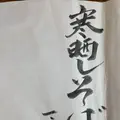 寒晒しそば
一